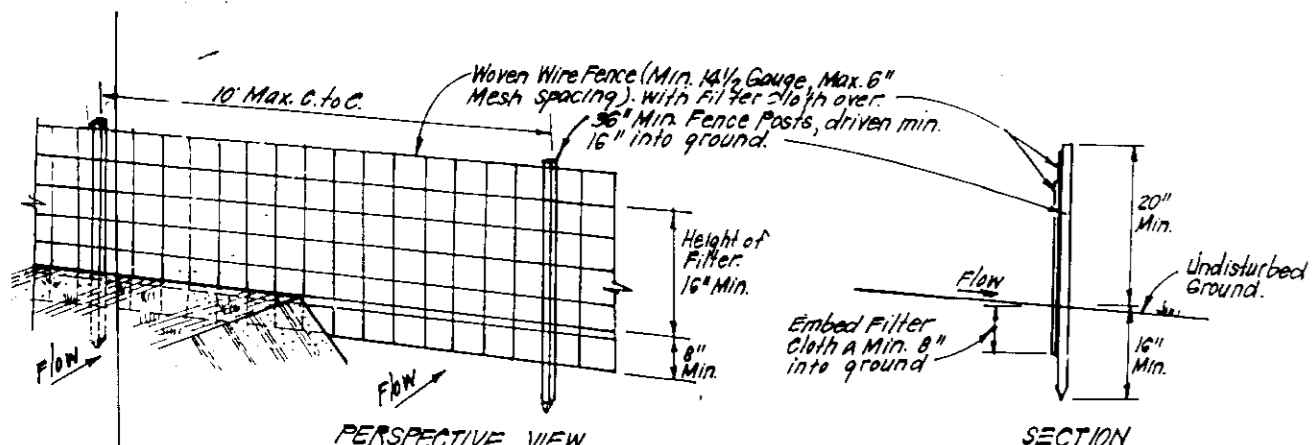 10' Max. C. to C.
Woven Wire Fence (Min. 14½ Gauge, Max. 6"
Mesh spacing). with Filter Cloth over.
36" Min. Fence Posts, driven min.
16" into ground.
Height of
Filter.
16" Min.
8"
Min.
Flow
Flow
PERSPECTIVE VIEW
20"
Min.
Flow
Undisturbed
Ground.
Embed Filter
Cloth A Min. 8"
into ground
16"
Min.
SECTION